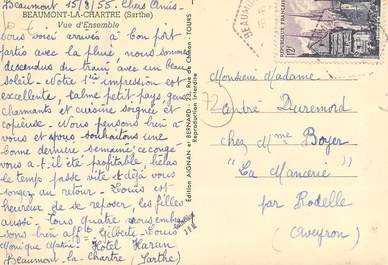 Beaumont le 15/8/55. Chers Amis.
BEAUMONT-LA-CHARTRE (Sarthe)
Vue d'Ensemble
Nous voici arrivés à bon port
partis avec la pluie nous sommes
descendus du train avec un beau
soleil. Notre 1ère impression est
excellente, calme petit pays, gens
charmants et cuisine soignée et
copieuse. Nous pensons bien à
vous et vous souhaitons une
bonne dernière semaine, ce congé
vous a-t-il été profitable, hélas
le temps passe vite et déjà vous
songez au retour. Louis est
heureux de se reposer, les filles
aussi. Tous quatre vous embras
sons bien afft Gilberte Louis
Monique Hôtel Haran
Beaumont-la-Chartre (Sarthe)
Édition AIGNAN et BERNARD - 72, Rue de Chinon - TOURS
Reproduction interdite
12F
Monsieur Madame
André Duremord
chez Mme Boyer
"La Manerie"
par Rodelle
(Aveyron)